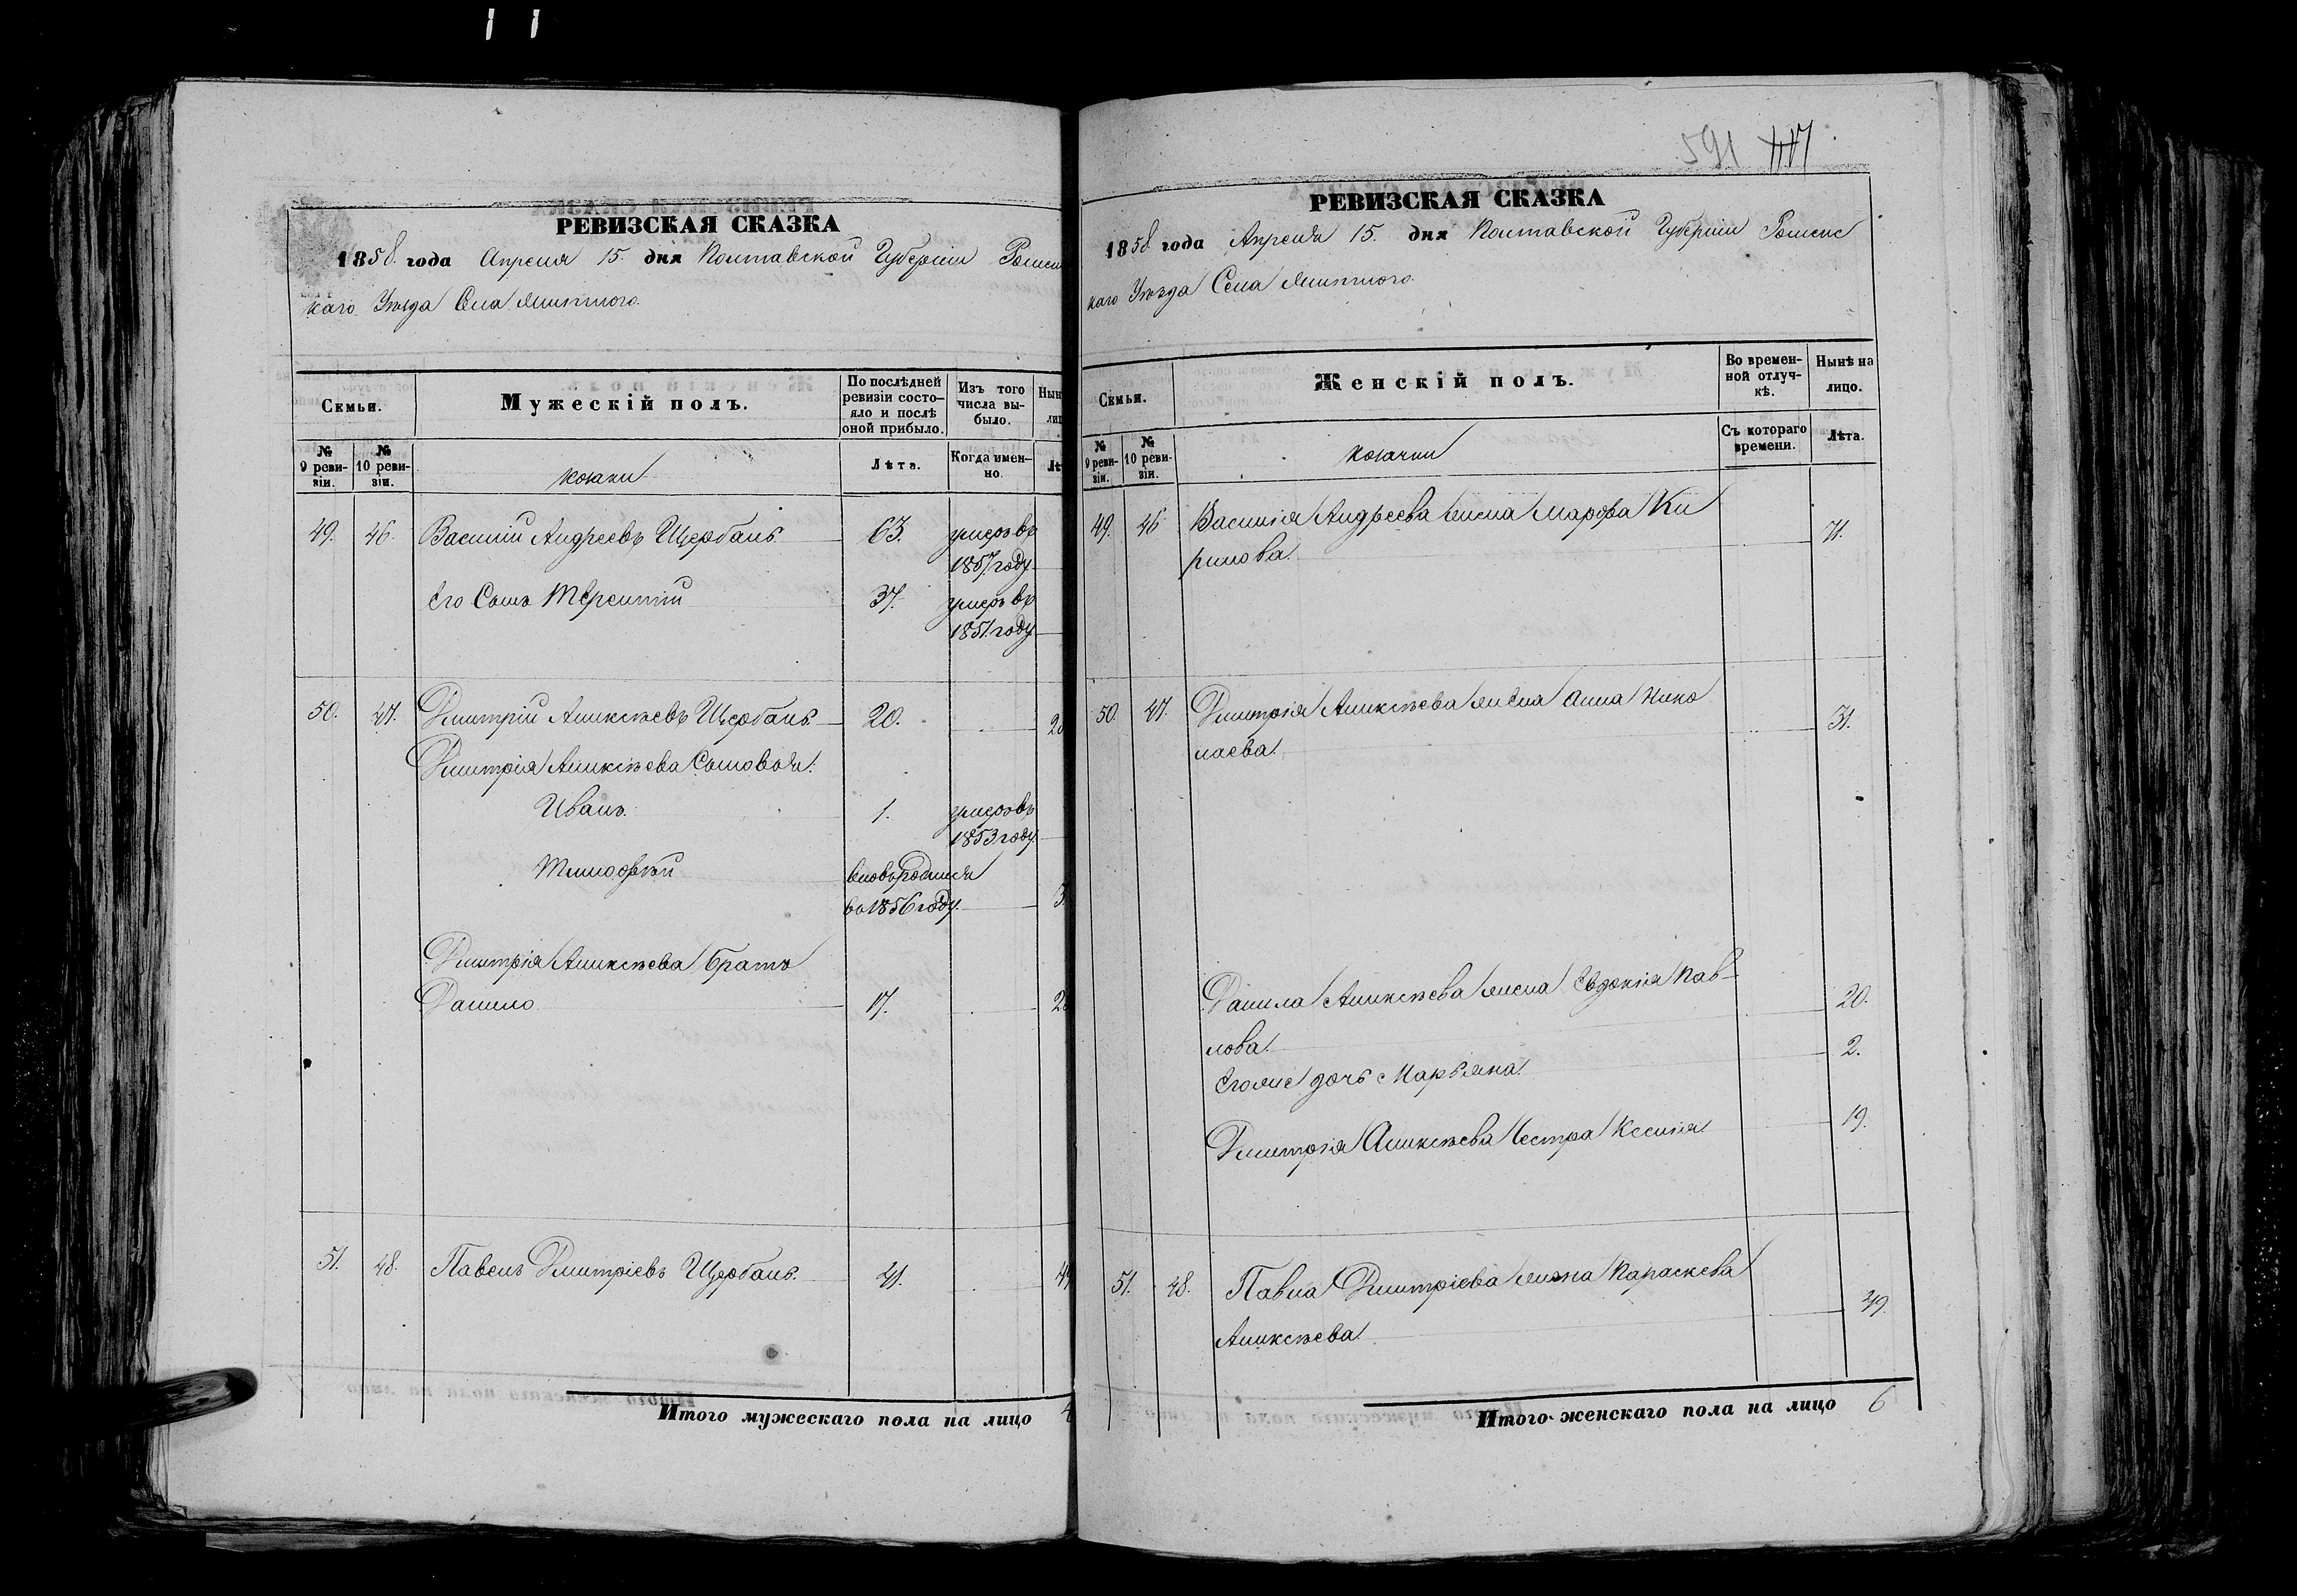 591
РЕВИЗСКАЯ СКАЗКА
1858. года Апреля 15. дня Полтавской Губерніи Ромен
каго Уѣзда Села
Семьи.
Мужескій полъ.
По послѣдней ревизіи состояло и послѣ оной прибыло.
Изъ того числа выбыло.
№ 9 ревизіи.
№ 10 ревизіи.
козаки
Лѣта.
Когда именно.
49. 46. Василій Андреевъ Щербань. 63. умеръ въ
1857. году
Его Сынъ Терентій 37. умеръ въ
1851. году
50. 47. Дмитрій Алексѣевъ Щербань 20.
Дмитрія Алексѣева Сыновья:
Иванъ. 1. умеръ въ
1853 году.
Тимофѣй вновь родился
во 1856 году.
Дмитрія Алексѣева братъ
Данило. 17.
51. 48. Павелъ Дмитріевъ Щербань. 41.
Итого мужескаго пола на лицо
РЕВИЗСКАЯ СКАЗКА
1858. года Апреля 15. дня Полтавской Губерніи Роменс
каго Уѣзда Села
Семьи.
Женскій полъ.
Во временной отлучкѣ.
Нынѣ на лицо.
№ 9 ревизіи.
№ 10 ревизіи.
козачки
Съ котораго времени.
Лѣта.
49. 46 Василія Андреева жена Марфа Ки
рилова. 71.
50. 47. Дмитрія Алексѣева жена Анна Нико
лаева. 31.
Данила Алексѣева жена Евдокія Пав-
лова. 20.
Егоже дочь Марьяна. 2.
Дмитрія Алексѣева Сестра Ксенія. 19.
51. 48. Павла Дмитріева жена Параскева
Алексѣева. 49.
Итого женскаго пола на лицо 6